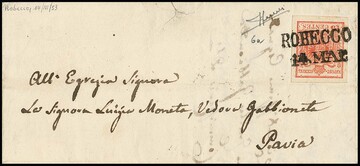 Robecco, 14/III/53
6a
ROBECCO
14. MAR.
15 CENTES
All' Egregia Signora
La Signora Luigia Moneta, Vedova Gabbioneta
Pavia